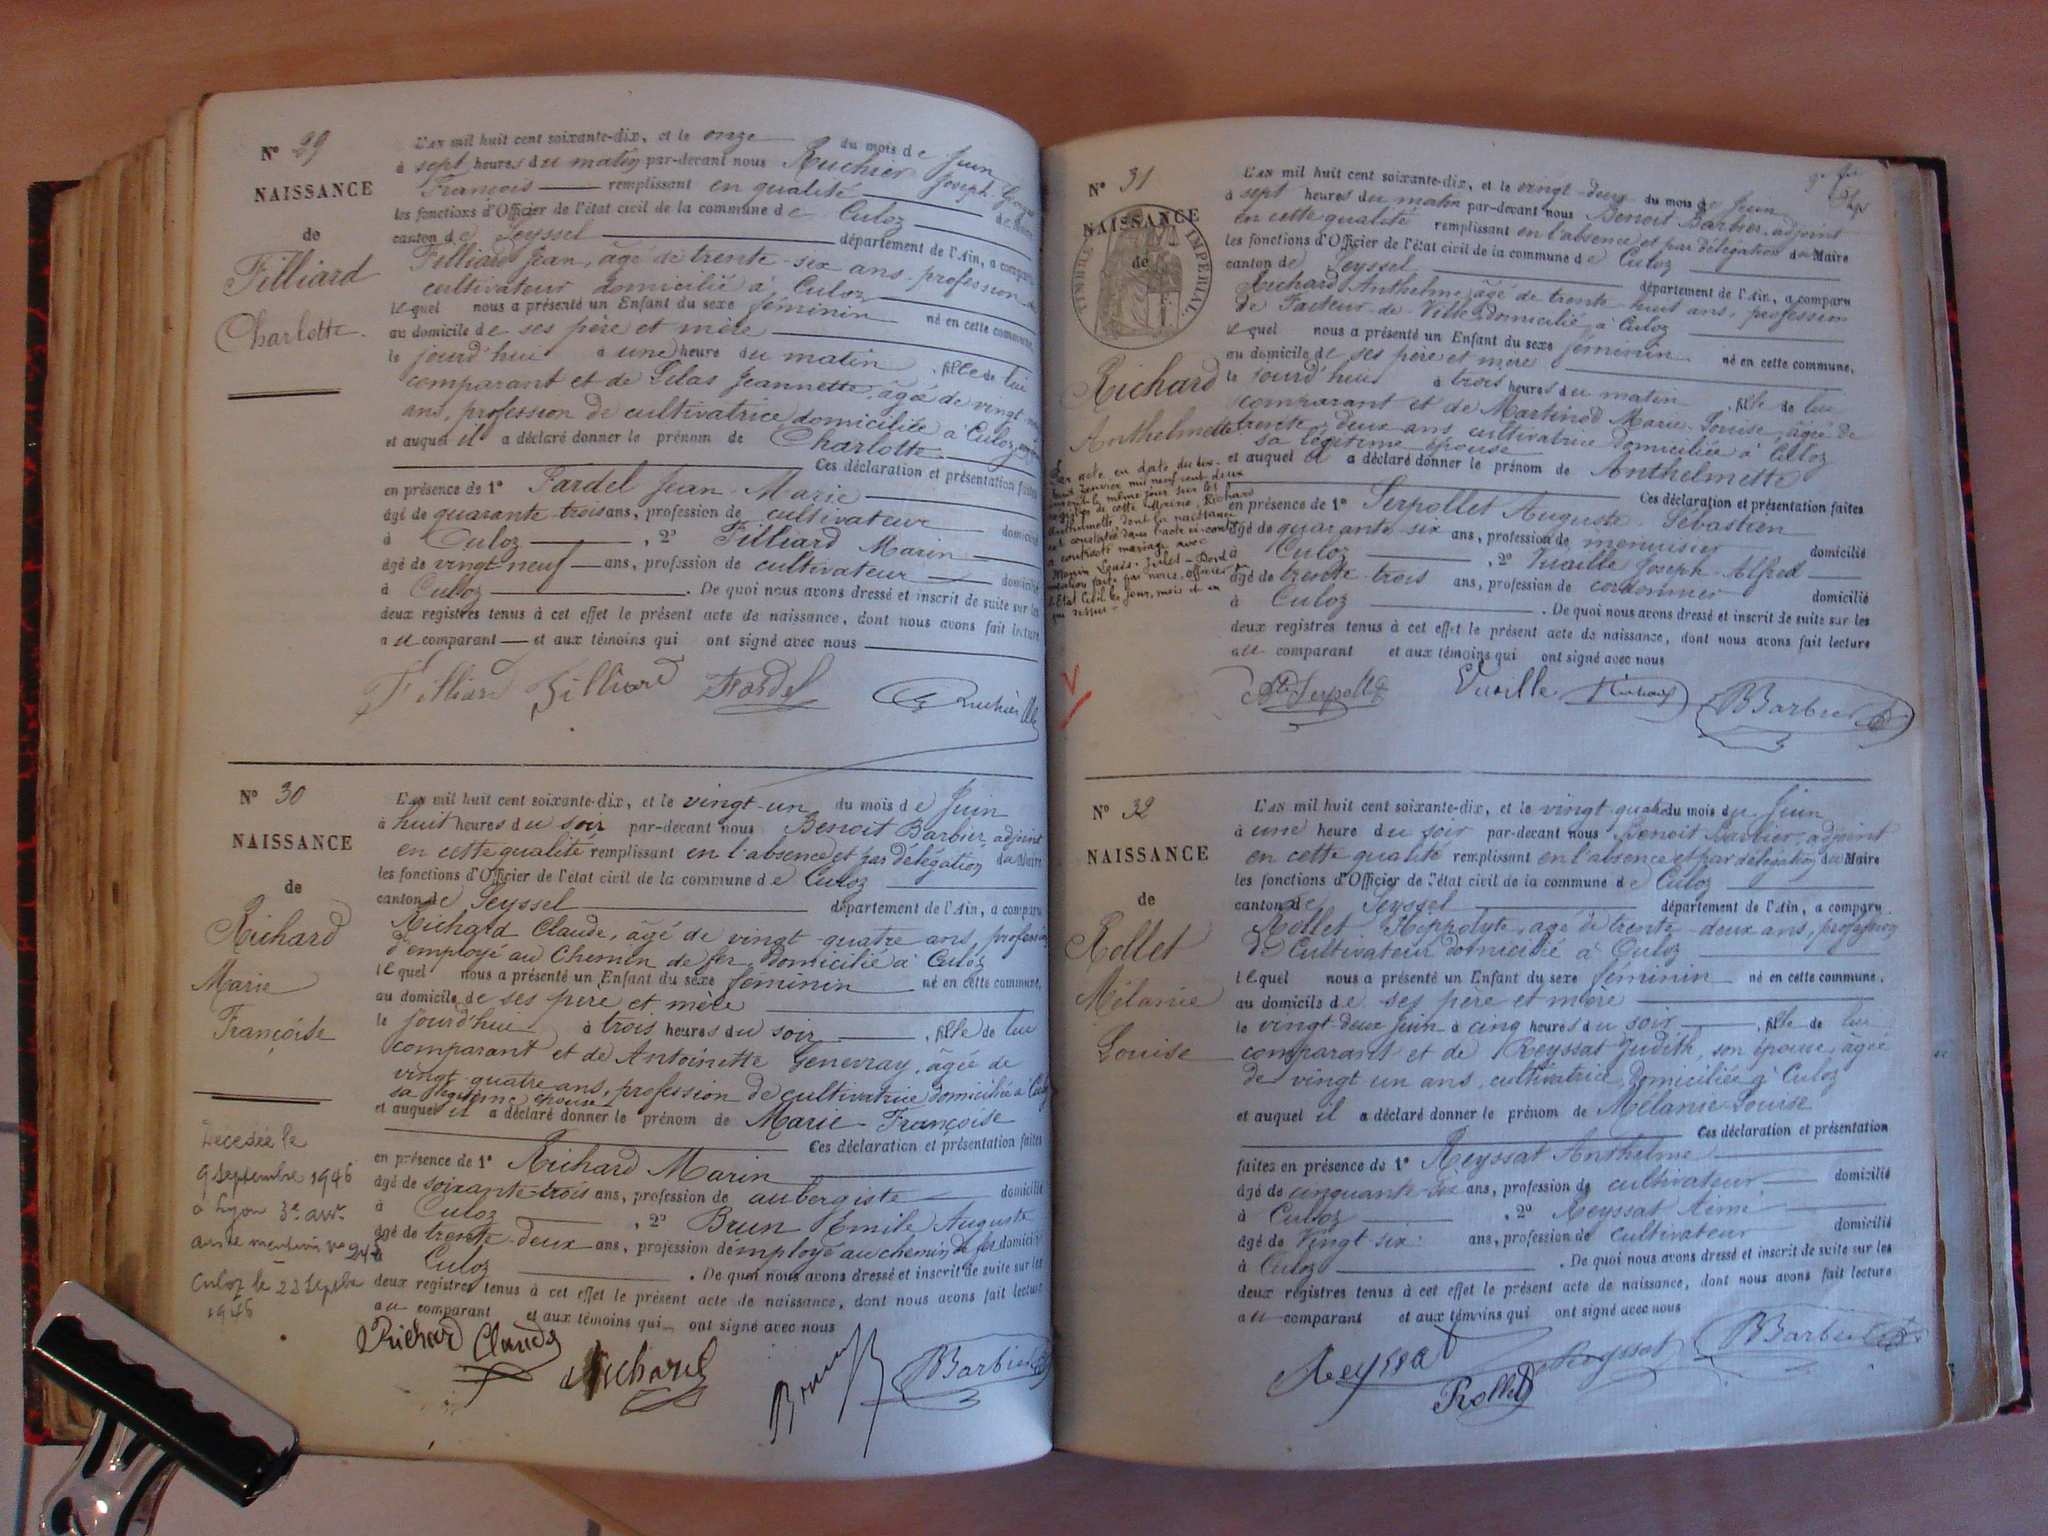 N° 29
NAISSANCE
de
Filliard
Charlotte
L'an mil huit cent soixante-dix, et le onze du mois de Juin
à sept heures du matin par-devant nous Ruchier Joseph
François remplissant en qualité de Maire
les fonctions d'Officier de l'état civil de la commune de Culoz
canton de Seyssel département de l'Ain, a comparu
Filliard Jean, âgé de trente-six ans, profession de
cultivateur domicilié à Culoz
lequel nous a présenté un Enfant du sexe féminin né en cette commune,
au domicile de ses père et mère
le jourd'hui à une heure du matin, fille de lui
comparant et de Lilas Jeannette, âgée de vingt
ans, profession de cultivatrice domiciliée à Culoz
et auquel il a déclaré donner le prénom de Charlotte
Ces déclaration et présentation faites
en présence de 1° Fardel Jean-Marie
âgé de quarante-trois ans, profession de cultivateur domicilié
à Culoz, 2° Filliard Marin
âgé de vingt neuf ans, profession de cultivateur domicilié
à Culoz. De quoi nous avons dressé et inscrit de suite sur les
deux registres tenus à cet effet le présent acte de naissance, dont nous avons fait lecture
au comparant et aux témoins qui ont signé avec nous
Filliard Filliard Fardel Ruchier
N° 30
NAISSANCE
de
Richard
Marie
Françoise
L'an mil huit cent soixante-dix, et le vingt-un du mois de Juin
à huit heures du soir par-devant nous Benoit Barbier, adjoint
en cette qualité remplissant en l'absence et par délégation du Maire
les fonctions d'Officier de l'état civil de la commune de Culoz
canton de Seyssel département de l'Ain, a comparu
Richard Claude, âgé de vingt-quatre ans, profession
d'employé au Chemin de fer, domicilié à Culoz
lequel nous a présenté un Enfant du sexe féminin né en cette commune,
au domicile de ses père et mère
le jourd'hui à trois heures du soir, fille de lui
comparant et de Antoinette Genevray, âgée de
vingt-quatre ans, profession de cultivatrice domiciliée à Culoz
sa légitime épouse
et auquel il a déclaré donner le prénom de Marie-Françoise
Ces déclaration et présentation faites
en présence de 1° Richard Marin
âgé de soixante-trois ans, profession de aubergiste domicilié
à Culoz, 2° Brun Emile Auguste
âgé de trente-deux ans, profession d'employé au chemin de fer domicilié
à Culoz. De quoi nous avons dressé et inscrit de suite sur les
deux registres tenus à cet effet le présent acte de naissance, dont nous avons fait lecture
au comparant et aux témoins qui ont signé avec nous
Décédée le
9 Septembre 1946
à Lyon 3e arr.
Culoz le 23 Septbre
1946
Richard Claude Richard Brun BBarbier
N° 31
NAISSANCE
de
TIMBRE IMPÉRIAL
Richard
Anthelmette
L'an mil huit cent soixante-dix, et le vingt-deux du mois de Juin
à sept heures du matin par-devant nous Benoit Barbier, adjoint
en cette qualité remplissant en l'absence et par délégation du Maire
les fonctions d'Officier de l'état civil de la commune de Culoz
canton de Seyssel département de l'Ain, a comparu
Richard Anthelme, âgé de trente-huit ans, profession
de Facteur-de-Ville, domicilié à Culoz
lequel nous a présenté un Enfant du sexe féminin né en cette commune,
au domicile de ses père et mère
le jourd'hui à trois heures du matin, fille de lui
comparant et de Martinod Marie-Louise, âgée de
trente-deux ans cultivatrice domiciliée à Culoz
sa légitime épouse
et auquel il a déclaré donner le prénom de Anthelmette
Ces déclaration et présentation faites
en présence de 1° Serpollet Auguste Sébastien
âgé de quarante-six ans, profession de menuisier domicilié
à Culoz, 2° Vuaille Joseph-Alfred
âgé de trente-trois ans, profession de cordonnier domicilié
à Culoz. De quoi nous avons dressé et inscrit de suite sur les
deux registres tenus à cet effet le présent acte de naissance, dont nous avons fait lecture
au comparant et aux témoins qui ont signé avec nous
Par acte en date du dix-
Janvier mil neuf cent deux
inscrit le même jour sur les
registres de cette Mairie, Richard
Anthelmette, dont la naissance
est constatée dans l'acte ci-contre
a contracté mariage avec
Monin Louis-Jules - Dont
mention faite par nous, officier de
l'Etat Civil les jour, mois et an
que dessus
Serpollet Vuaille Richard BBarbier
N° 32
NAISSANCE
de
Rollet
Mélanie
Louise
L'an mil huit cent soixante-dix, et le vingt-quatre du mois du Juin
à une heure du soir par-devant nous Benoit Barbier, adjoint
en cette qualité remplissant en l'absence et par délégation du Maire
les fonctions d'Officier de l'état civil de la commune de Culoz
canton de Seyssel département de l'Ain, a comparu
Rollet Hippolyte, agé de trente-deux ans, profession
de Cultivateur domicilié à Culoz
lequel nous a présenté un Enfant du sexe féminin né en cette commune,
au domicile de ses père et mère
le vingt-deux Juin à cinq heures du soir, fille de lui
comparant et de Reyssat Judith, son épouse, agée
de vingt un ans, cultivatrice, domiciliée à Culoz
et auquel il a déclaré donner le prénom de Mélanie Louise
Ces déclaration et présentation
faites en présence de 1° Reyssat Anthelme
âgé de cinquante-six ans, profession de cultivateur domicilié
à Culoz, 2° Reyssat Aimé
âgé de Vingt-six ans, profession de cultivateur domicilié
à Culoz. De quoi nous avons dressé et inscrit de suite sur les
deux registres tenus à cet effet le présent acte de naissance, dont nous avons fait lecture
au comparant et aux témoins qui ont signé avec nous
Reyssat Rollet Reyssat BBarbier